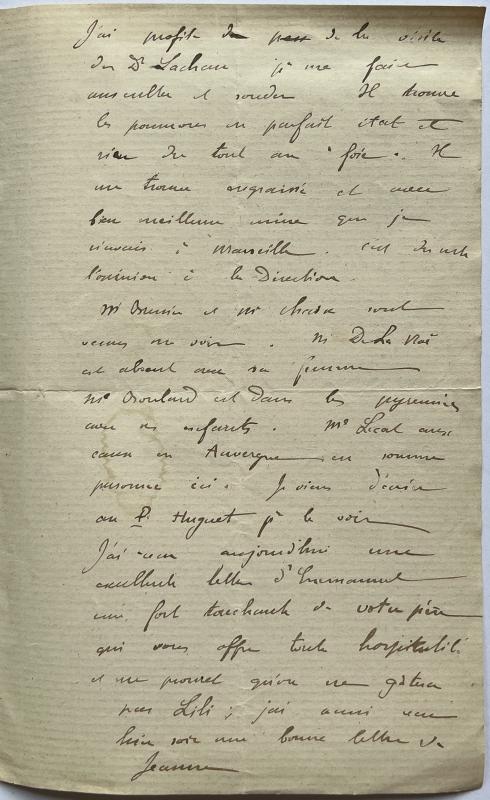 J'ai profité de de la visite
du Dr Lachaux pr me faire
ausculter et sonder Il trouve
les poumons en parfait état et
rien du tout au "foie". Il
me trouve engraissé et avec
bien meilleure mine que je
n'avais à Marseille. C'est du reste
l'opinion à la Direction.
Mr et Mr sont
venus me voir. Mr De La Noë
est absent avec sa femme
Mr Boulard est dans les pyrennées
avec ses enfants. Mr Lecat avec
en Auvergne en somme
personne ici. Je viens d'écrire
au P. Huguet pr le voir
J'ai reçu aujourd'hui une
excellente lettre d'Emmanuel
une fort touchante de votre père
qui vous offre toute hospitalité
et me promet qu'on ne gâtera
pas Lili; j'ai aussi reçu
hier soir une bonne lettre de
Jeanne